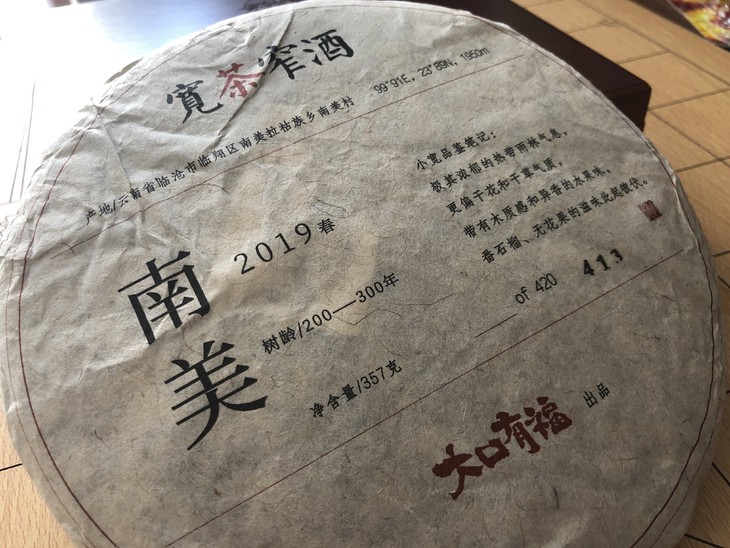 寛茶窄酒
99°91E，23°89N，1950m
产地/云南省临沧市临翔区南美拉祜族乡南美村
小宽品鉴笔记：
极其浓郁的热带雨林气息，
更偏干花和干草气质，
带有木质感和异香的水果味，
番石榴、无花果的滋味此起彼伏。
南美
2019春
树龄/200——300年
净含量/357克
____ of 420
413
大口有福
出品